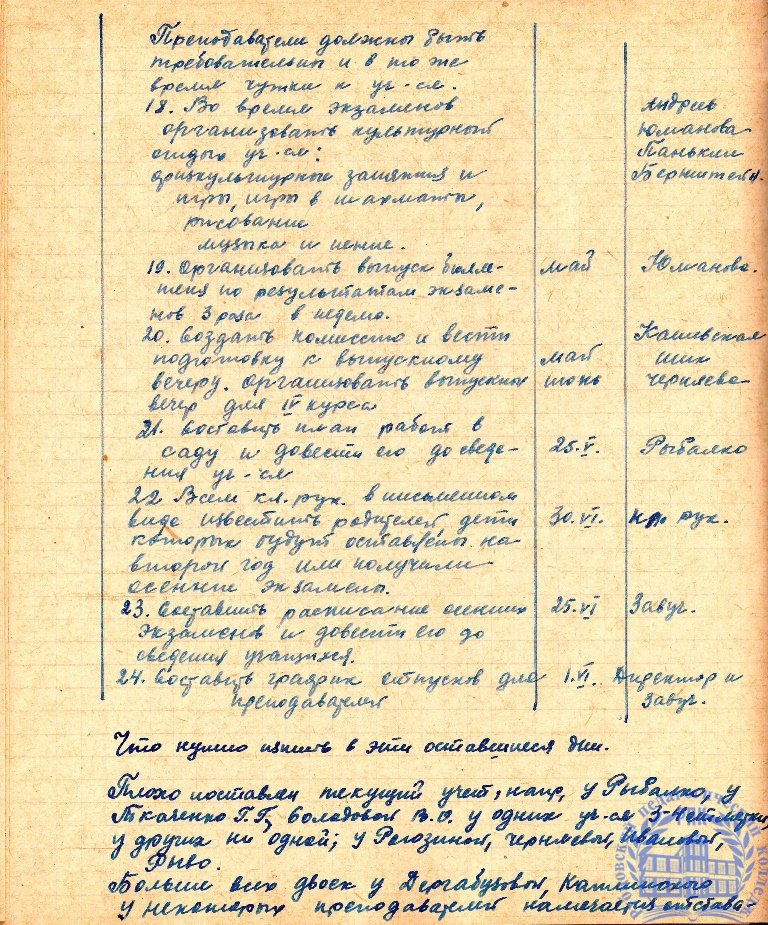 Преподаватели должны быть
требовательны и в то же
время чутки к уч-ся.
18. Во время экзаменов Андриь
организовать культурный Юманова
отдых уч-ся: Панькин
физкультурные занятия и Бернштейн.
игры, игры в шахматы,
рисование
музыка и пение.
19. Организовать выпуск бюлле- май Юманова.
теня по результатам экзаме-
нов 3 раза в неделю.
20. Создать комиссию и вести Кашевская
подготовку к выпускному май
вечеру. Организовать выпускной июнь Черняева
вечер для IV курса
21. Составить план работ в
саду и довести его до сведе- 25.V. Рыбалко
ния уч-ся
22 Всем кл. рук. в письменном
виде известить родителей, дети 30.VI. кл. рук.
которых будут оставлены на
второй год или получили
осенние экзамены.
23. Составить расписание осенних 25.VI Завуч.
экзаменов и довести его до
сведения учащихся.
24. Составить график отпусков для 1.VI. Директор и
преподавателей Завуч.
Что нужно изжить в эти оставшиеся дни.
Плохо поставлен текущий учет, напр, у Рыбалко, у
Ткаченко Г.Г., Солодовой В.О. у одних уч-ся 3-4 отметки,
у других ни одной; у Рогозиной, Черняевой, Ивановой,
Рыво.
Больше всех двоек у Дергабузовой, Каплинского
У некоторых преподавателей намечается отстава-